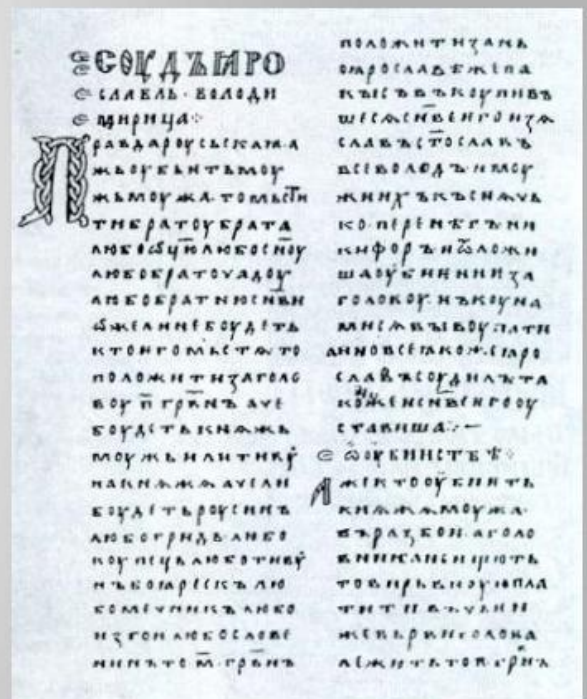 СОУДЪ ꙖРО
СЛАВЛЬ · ВОЛОДИ
МИРИЦА
Правда роусьскаꙗ · а
жь оубьить моу
жь моужа · то мьсти
ти братоу брата
любо ѿцю любо сн҃оу
любо брато чадоу
любо братню сн҃ви
ѡже ли не боудеть
кто ѥго мьстѧ то
положити за голо
воу п҃ грвн҃ъ аче
боудеть кнѧжь
моужь или тивоу
на кнѧжа аче ли
боудеть роусинъ
любо гридь любо
коупець любо тивоу
нъ боꙗрескъ лю
бо мечникъ любо
изгои любо слове
нинъ то м҃ · грвн҃ъ
положити за нь
по ꙗрославѣ же па
кы съвъкоупивъ
шесѧ сн҃ве ѥго изѧ
славъ ст҃ославъ
всеволодъ и моу
жи ихъ къснѧчь
ко · перенѣгъ ни
кифоръ и ѿложи
ша оубиениѥ за
головоу · нъ коуна
ми сѧ выкоупати
а ино все ꙗкоже ꙗро
славъ соудилъ та
коже и сн҃ве ѥго оу
ставиша
ѡ оубииствѣ
Аже кто оубиить
кнѧжа моужа ·
въ разбои · а голо
вника не ищють
то вирьвноую пла
тити въ чьѥи
же вьрви голова
лежить то п҃ · грвн҃ъ